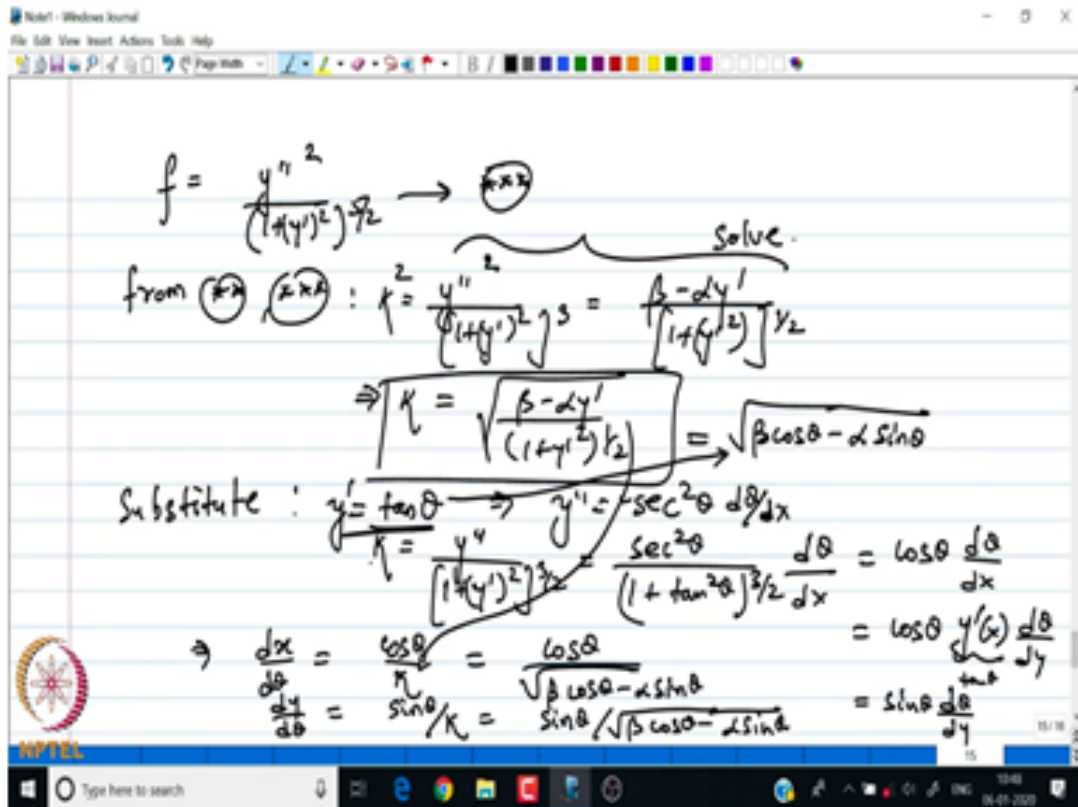 Note1 - Windows Journal
File Edit View Insert Actions Tools Help
Page Width
B I
f = y''² / (1+(y')²)^5/2 → ***
solve.
from ** , *** : κ² = y''² / [1+(y')²]³ = β - αy' / [1+(y'²)]^1/2
⇒ κ = √(β - αy' / (1+y'²)^1/2) = √(β cosθ - α sinθ)
Substitute : y' = tanθ ⇒ y'' = sec²θ dθ/dx
κ = y'' / [1+(y')²]^3/2 = sec²θ / (1 + tan²θ)^3/2 dθ/dx = cosθ dθ/dx
= cosθ y'(x) dθ/dy
tanθ
⇒ dx/dθ = cosθ/κ = cosθ / √(β cosθ - α sinθ)
dy/dθ = sinθ/κ = sinθ/√(β cosθ - α sinθ)
= sinθ dθ/dy
NPTEL
15/16
15
Type here to search
ENG
10:48
06-01-2020